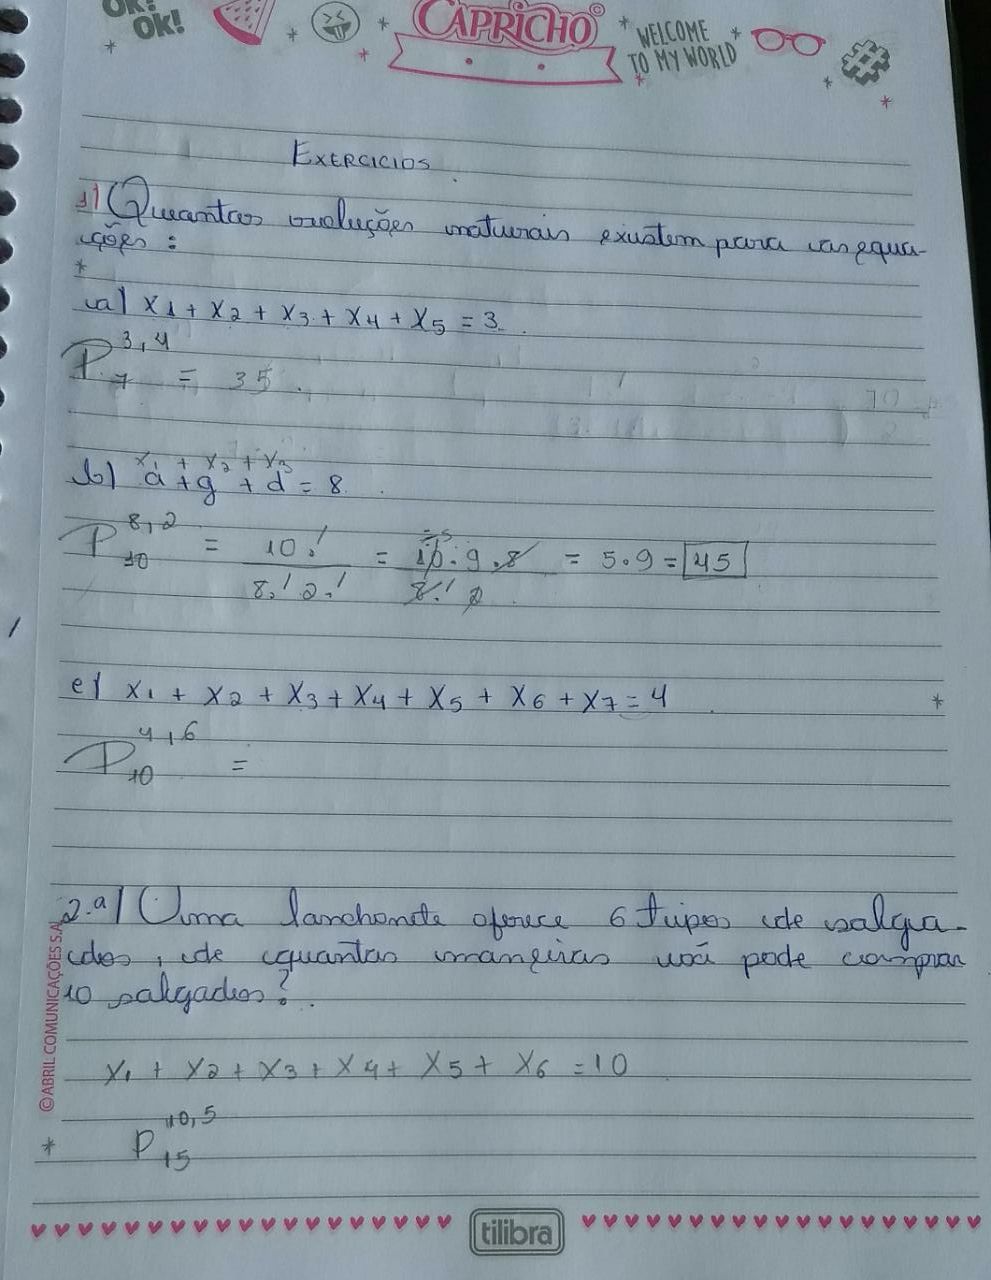 OK!
OK!
CAPRICHO©
WELCOME
TO MY WORLD
EXERCICIOS.
1) Quantas soluções naturais existem para as equa-
ções:
*
a) X1 + X2 + X3 + X4 + X5 = 3.
P7 3,4 = 35.
X1 + X2 + X3
b) a + g + d = 8.
P10 8,2 = 10! / 8! 2! = 10.9.8 / 8! 2 = 5.9 = 45
c) X1 + X2 + X3 + X4 + X5 + X6 + X7 = 4.
P10 4,6 =
2.a) Uma lanchonete oferece 6 tipos de salga-
dos, de quantas maneiras você pode comprar
10 salgados?.
X1 + X2 + X3 + X4 + X5 + X6 = 10
P15 10,5
©ABRIL COMUNICAÇÕES S.A.
tilibra